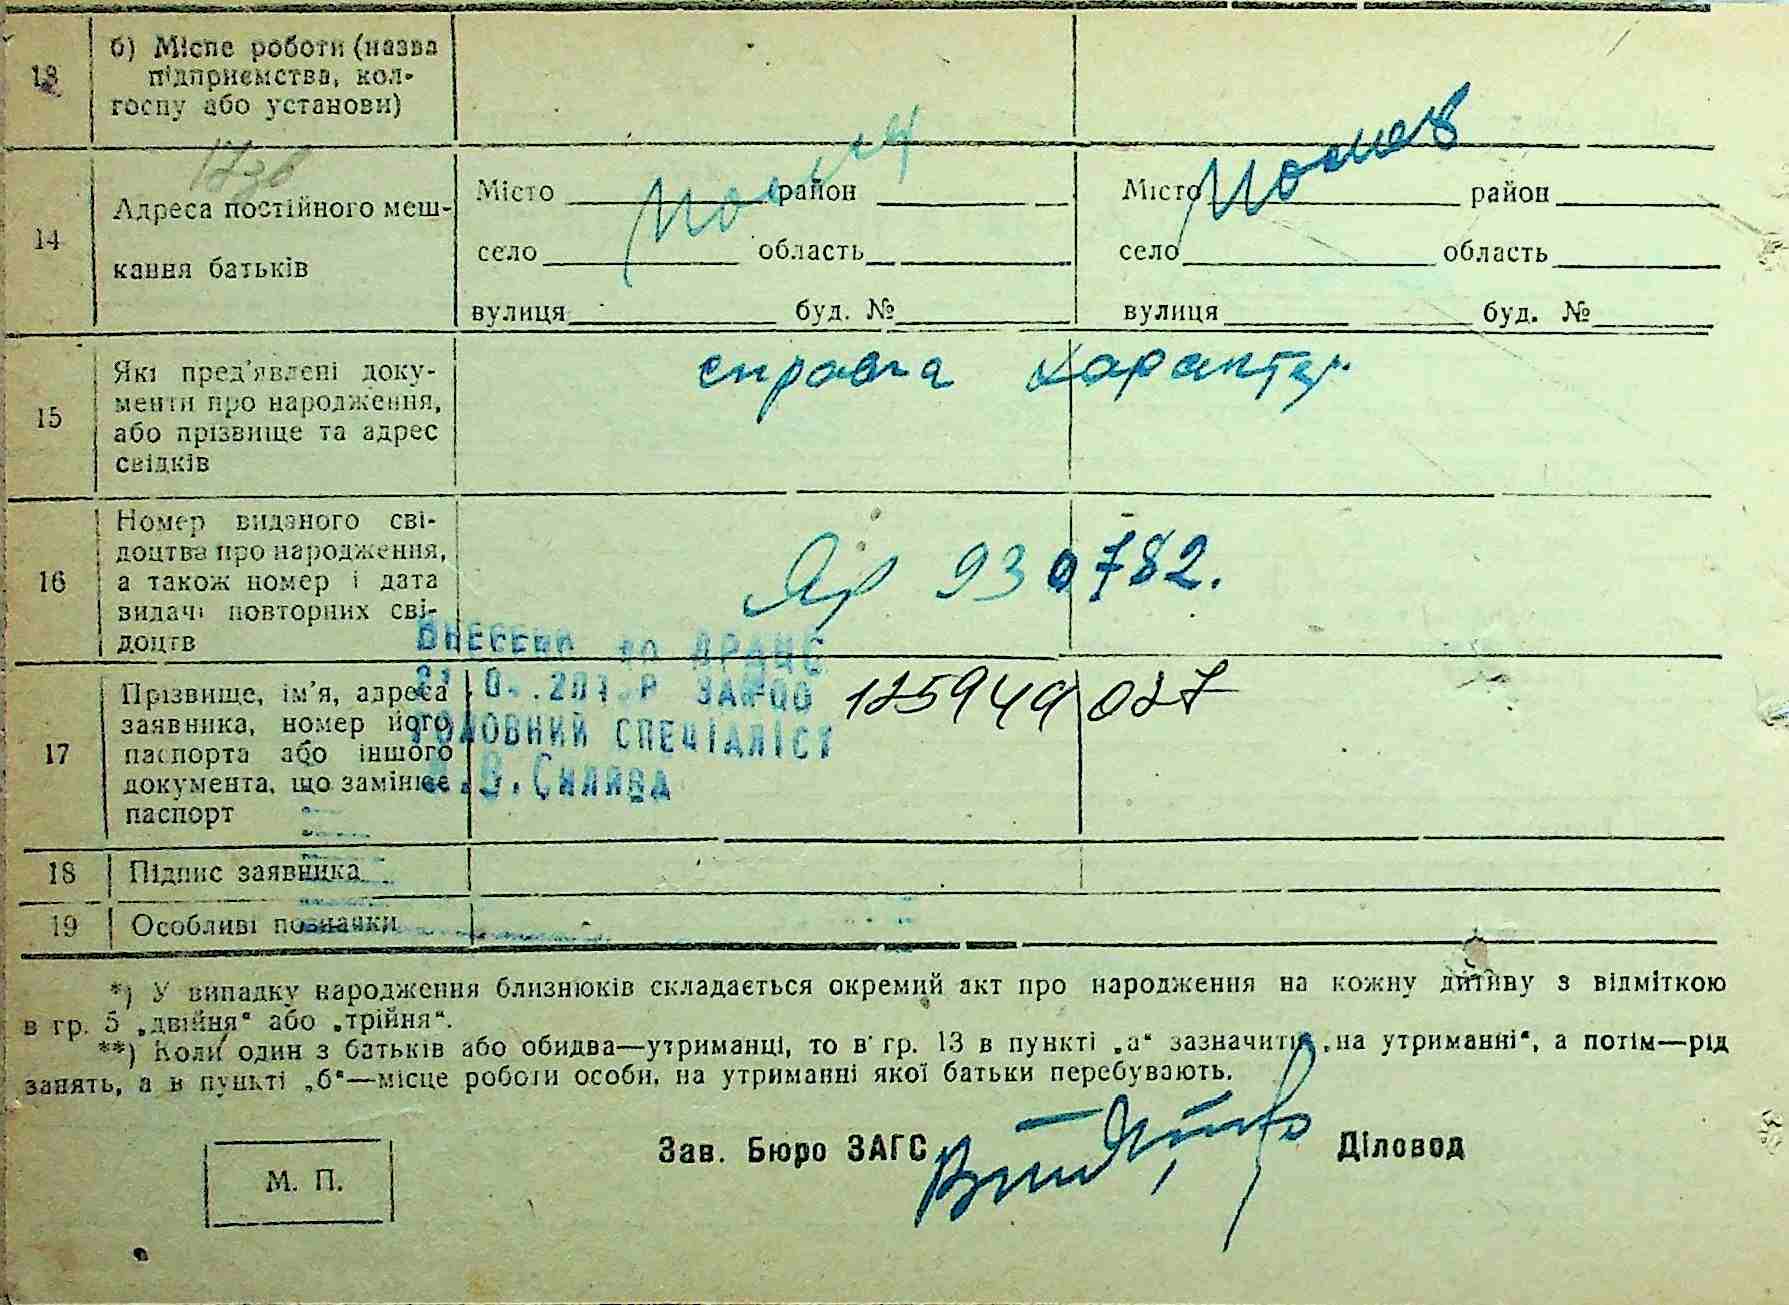 13 б) Місце роботи (назва
підприємства, кол-
госпу або установи)
14 Адреса постійного меш-
кання батьків
Місто район Місто район
село область село область
вулиця буд. № вулиця буд. №
15 Які пред'явлені доку-
менти про народження,
або прізвище та адрес
свідків
справка
16 Номер виданого сві-
доцтва про народження,
а також номер і дата
видачі повторних сві-
доцтв
930782.
ВНЕСЕНО до ДРАЦС
ГОЛОВНИЙ СПЕЦІАЛІСТ
17 Прізвище, ім'я, адреса
заявника, номер його
паспорта або іншого
документа, що замінює
паспорт
125949027
18 Підпис заявника
19 Особливі позначки
*) У випадку народження близнюків складається окремий акт про народження на кожну дитину з відміткою
в гр. 5 „двійня“ або „трійня“.
**) Коли один з батьків або обидва—утриманці, то в гр. 13 в пункті „а“ зазначити „на утриманні“, а потім—рід
занять, а в пункті „б“—місце роботи особи, на утриманні якої батьки перебувають.
Зав. Бюро ЗАГС Діловод
М. П.